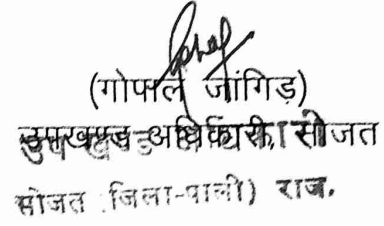 (गोपाल जांगिड़)
उपखण्ड अधिकारी, सोजत
सोजत जिला-पाली) राज.